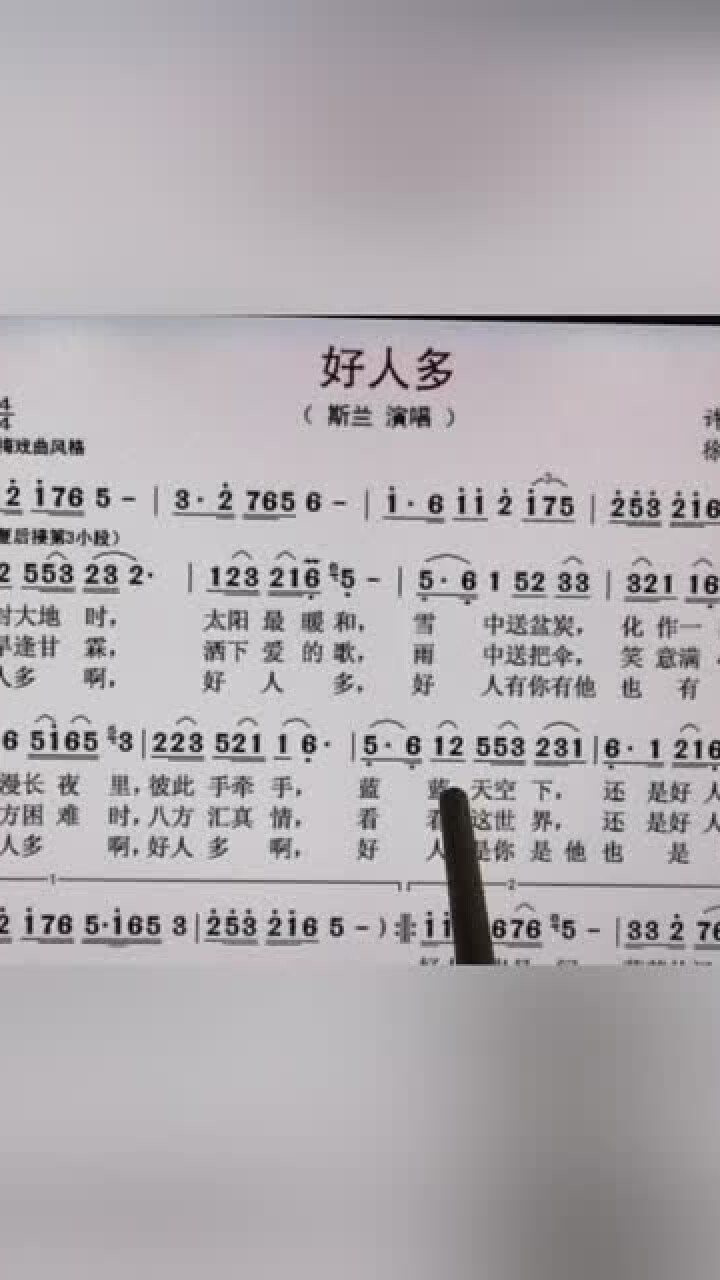 好人多
（ 斯兰 演唱 ）
4
4
戏曲风格
2 1765 - | 3· 2 765 6 - | 1· 6 11 2 175 | 253 216
3
复后接第3小段）
2 553 23 2· | 123 216 5 - | 5· 6 1 52 33 | 321 16
大地 时， 太阳 最 暖 和， 雪 中送盆炭， 化 作 一
早逢甘 霖， 洒下 爱 的 歌， 雨 中送把伞， 笑 意满
人多 啊， 好 人 多， 好 人有你有他 也 有
6 5165 3 | 223 521 1 6· | 5· 6 12 553 231 | 6· 1 216
漫长 夜 里，彼此 手牵 手， 蓝 天空 下， 还 是好 人
方困 难 时，八方 汇真 情， 看 这世 界， 还 是好 人
人多 啊，好人 多 啊， 好 人 是你 是 他 也 是
1 2
2 176 5·165 3 | 253 216 5 - ) :‖: 11 676 5 - | 33 2 76